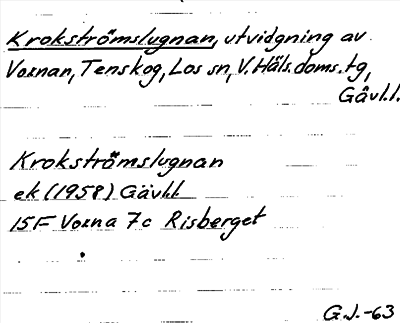 Krokströmslugnan, utvidgning av
Voxnan, Tenskog, Los sn, V. Häls. doms. tg,
Gävl.l.
Krokströmslugnan
ek (1958) Gävl.l
15F Voxna 7c Risberget
G.J.-63